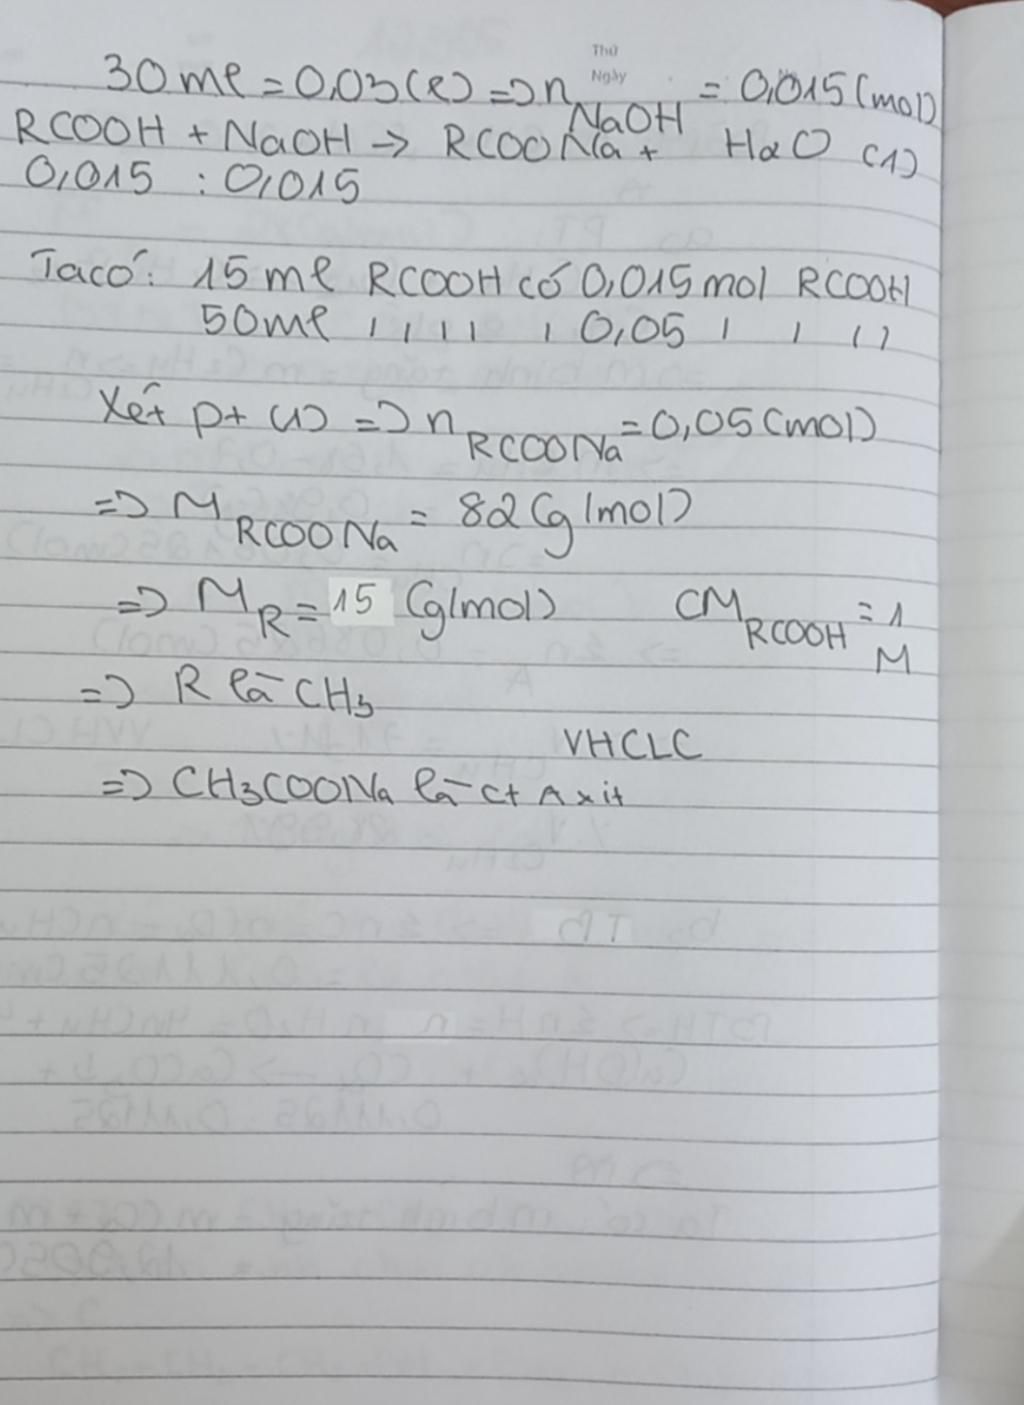 Thứ
Ngày
30ml = 0,03(l) => n NaOH = 0,015(mol)
RCOOH + NaOH → RCOONa + H2O (1)
0,015 : 0,015
Ta có: 15ml RCOOH có 0,015mol RCOOH
50ml , , , , , 0,05 , , , ,
Xét p+ (1) => n RCOONa = 0,05(mol)
=> M RCOONa = 82(g/mol)
=> M R = 15 (g/mol) CM RCOOH = 1 M
=> R là CH3
VHCLC
=> CH3COONa là ct Axit